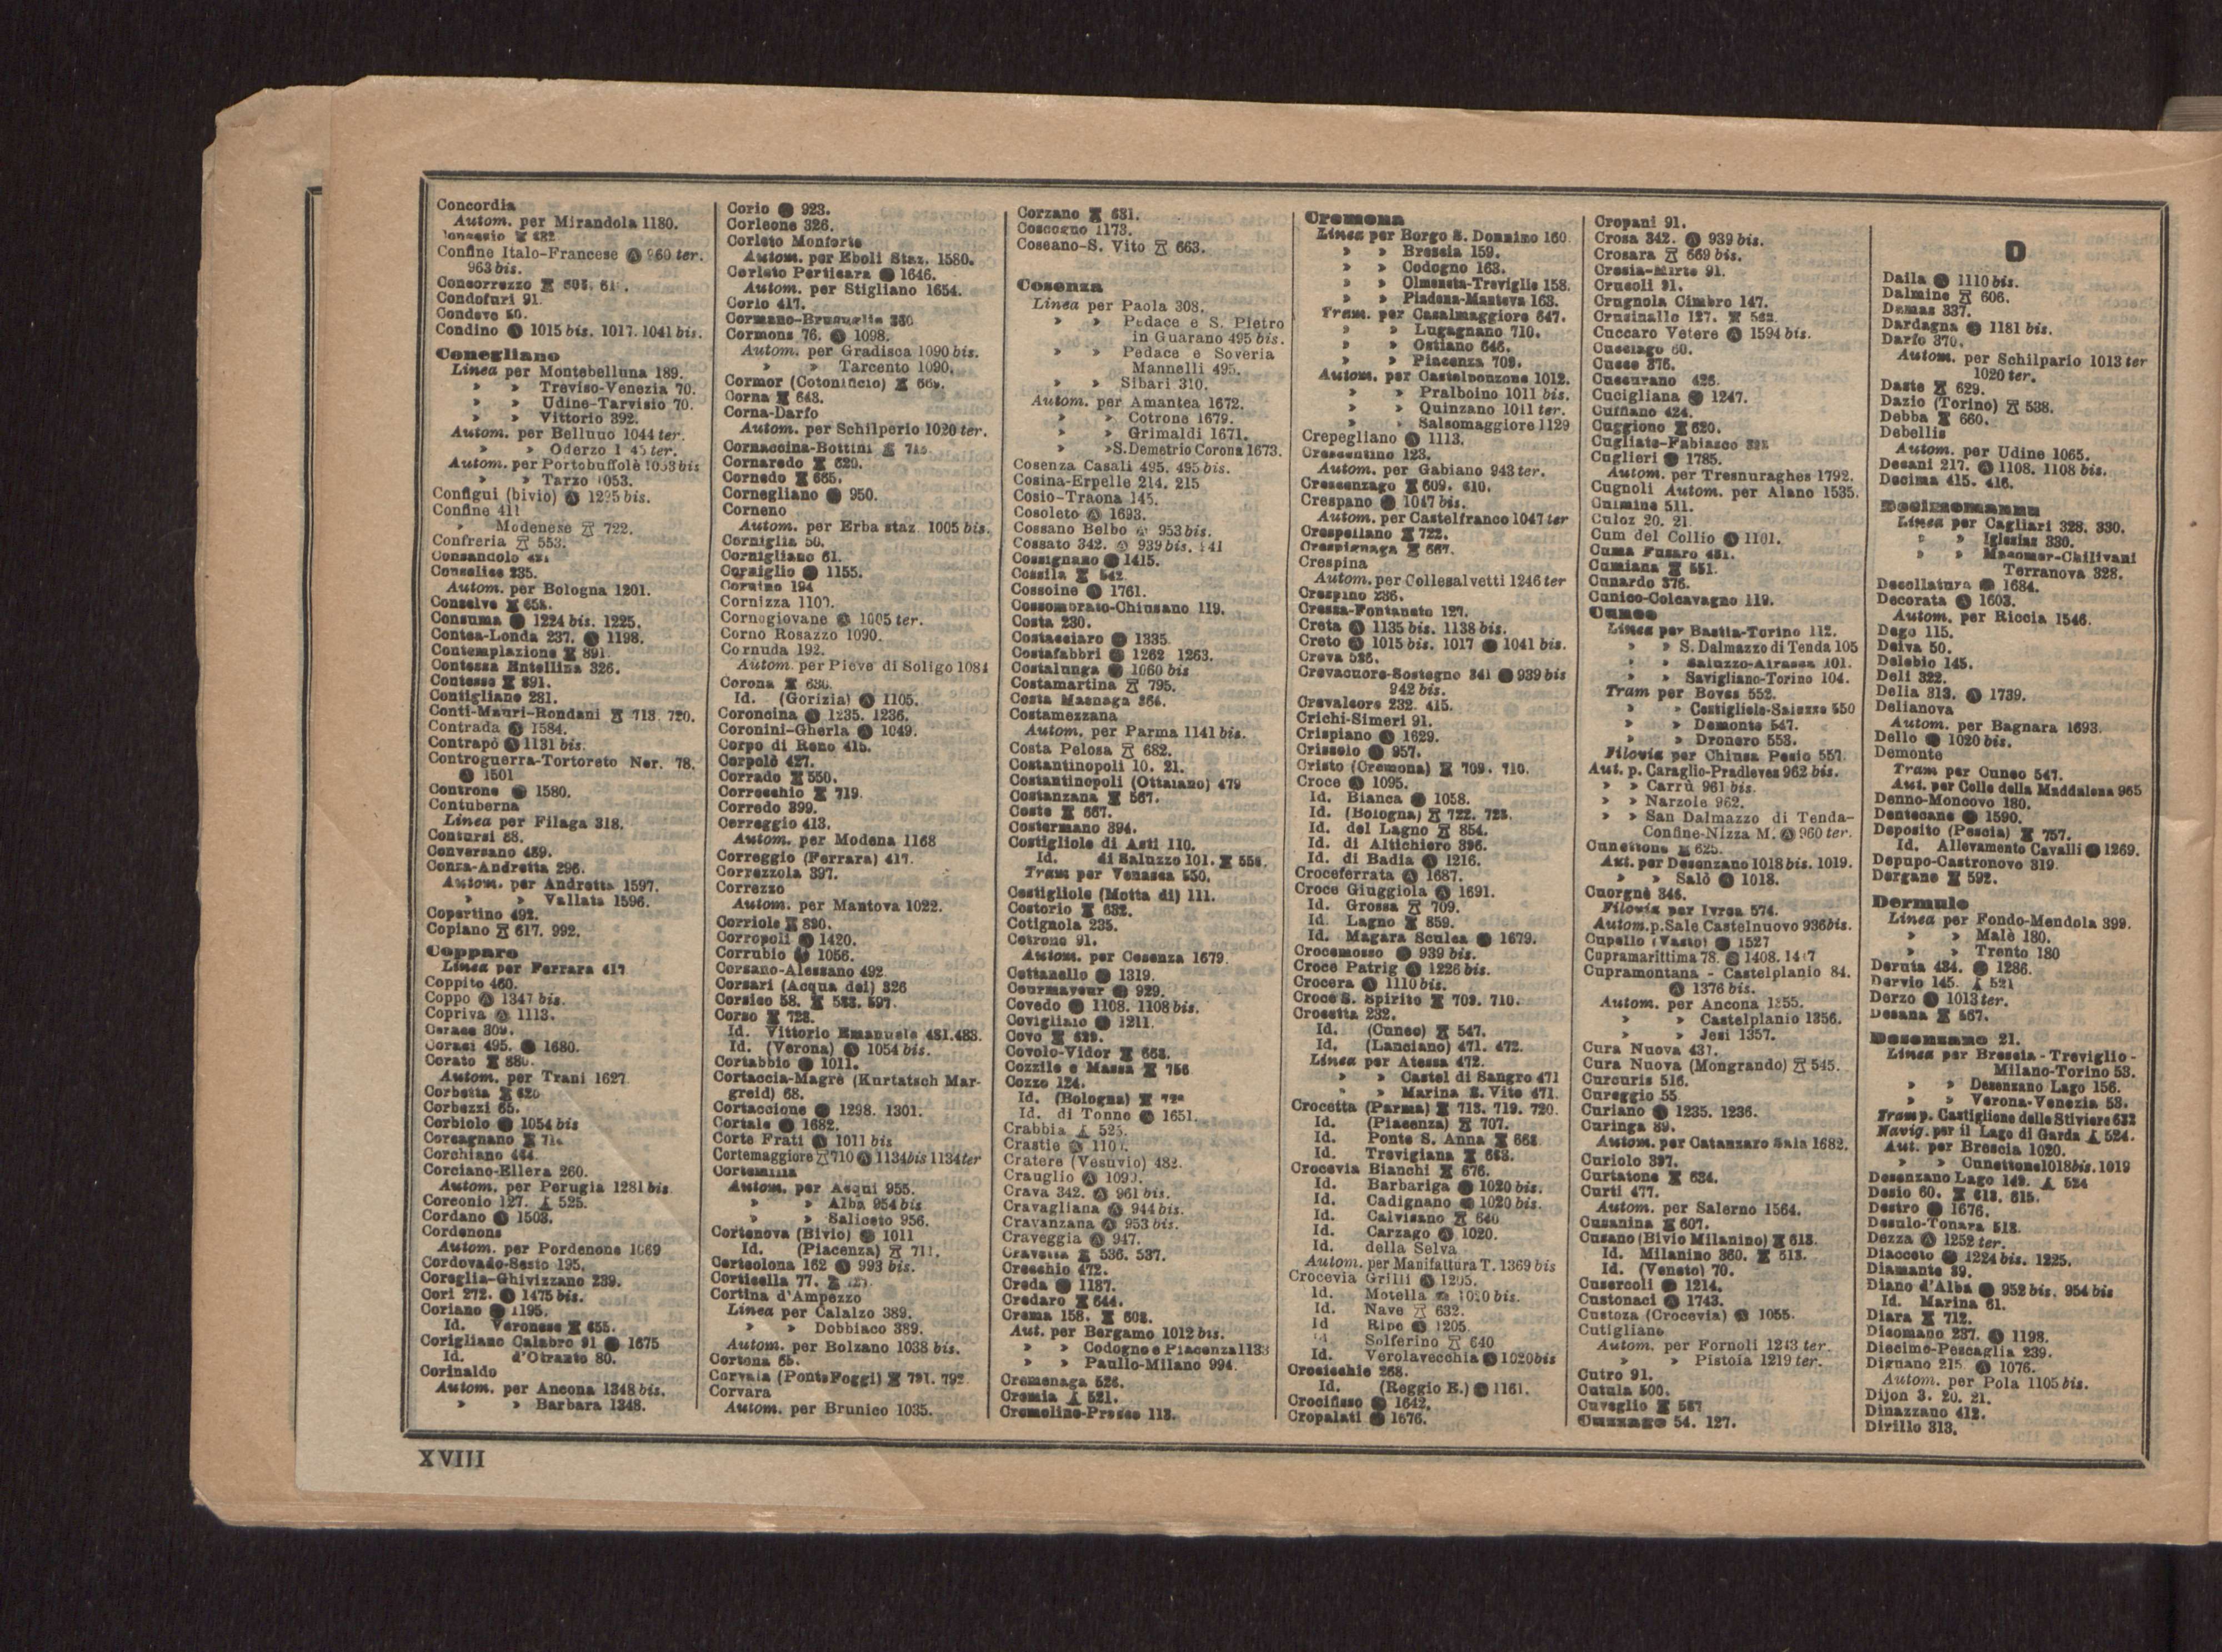 Concordia
Autom. per Mirandola 1180.
Confine Italo-Francese Ⓐ 960 ter.
963 bis.
Concorrezzo
Condofuri 91.
Condove 50.
Condino Ⓐ 1015 bis. 1017. 1041 bis.
Conegliano
Linea per Montebelluna 189.
» » Treviso-Venezia 70.
» » Udine-Tarvisio 70.
» » Vittorio 392.
Autom. per Belluno 1044 ter.
» » Oderzo
Autom. per Portobuffolè 1053 bis
» » Tarzo 1053.
Configui (bivio) Ⓐ 1225 bis.
Confine 411
» Modenese 722.
Confreria 553.
Consandolo
Conselice 235.
Autom. per Bologna 1201.
Conselve 658.
Consuma Ⓐ 1224 bis. 1225.
Contea-Londa 237. Ⓐ 1198.
Contemplazione 891.
Contessa Entellina 326.
Contesse 891.
Contigliano 281.
Conti-Mauri-Rondani 713. 720.
Contrada Ⓐ 1584.
Contrapò Ⓐ 1131 bis.
Controguerra-Tortoreto Ner. 78.
Ⓐ 1501
Controne Ⓐ 1580.
Contuberna
Linea per Filaga 318.
Contursi 68.
Conversano 459.
Conza-Andretta 296.
Autom. per Andretta 1597.
» » Vallata 1596.
Copertino 492.
Copiano 617. 992.
Copparo
Linea per Ferrara 417
Coppito 460.
Coppo Ⓐ 1347 bis.
Copriva Ⓐ 1113.
Corace
Coraci 495. Ⓐ 1680.
Corato
Autom. per Trani 1627
Corbetta 620
Corbezzi 65.
Corbiolo Ⓐ 1054 bis
Corcagnano
Corchiano 444.
Corciano-Ellera 260.
Autom. per Perugia 1281 bis
Corconio 127. 525.
Cordano Ⓐ 1503.
Cordenons
Autom. per Pordenone 1069
Cordovado-Sesto 195.
Coreglia-Ghivizzano 239.
Cori 272. Ⓐ 1475 bis.
Coriano Ⓐ 1195.
Id. Veronese 655.
Corigliano Calabro 91 Ⓐ 1675
Id. d'Otranto 80.
Corinaldo
Autom. per Ancona 1348 bis.
» » Barbara 1348.
Corio Ⓐ 923.
Corleone 326.
Corleto Monforte
Autom. per Eboli Staz. 1580.
Corleto Perticara Ⓐ 1646.
Autom. per Stigliano 1654.
Corlo 417.
Cormano-Brusuglio 360
Cormons 76. Ⓐ 1098.
Autom. per Gradisca 1090 bis.
» » Tarcento 1090.
Cormor (Cotonificio)
Corna 643.
Corna-Darfo
Autom. per Schilperio 1020 ter.
Cornaccina-Bottini
Cornaredo 629.
Cornedo 665.
Cornegliano Ⓐ 950.
Corneno
Autom. per Erba staz 1005 bis.
Corniglia 50.
Cornigliano 61.
Corniglio Ⓐ 1155.
Cornino 194
Cornizza 1109.
Cornogiovane Ⓐ 1005 ter.
Corno Rosazzo 1090.
Cornuda 192.
Autom. per Pieve di Soligo 1084
Corona 630.
Id. (Gorizia) Ⓐ 1105.
Coroncina Ⓐ 1235. 1236.
Coronini-Gherla Ⓐ 1049.
Corpo di Reno 415.
Corpolò 427.
Corrado 550.
Correcchio 719.
Corredo 399.
Correggio 413.
Autom. per Modena 1168
Correggio (Ferrara) 417.
Correzzola 397.
Correzzo
Autom. per Mantova 1022.
Corriolo 890.
Corropoli Ⓐ 1420.
Corrubio Ⓐ 1056.
Corsano-Alessano 492
Corsari (Acqua dei) 326
Corsico 58. 583. 597.
Corso 728.
Id. Vittorio Emanuele 481.483.
Id. (Verona) Ⓐ 1054 bis.
Cortabbio Ⓐ 1011.
Cortaccia-Magrè (Kurtatsch Mar-
greid) 68.
Cortaccione Ⓐ 1298. 1301.
Cortale Ⓐ 1682.
Corte Frati Ⓐ 1011 bis
Cortemaggiore 710 Ⓐ 1134bis 1134ter
Cortemilia
Autom. per Acqui 955.
» » Alba 954 bis
» » Saliceto 956.
Cortenova (Bivio) Ⓐ 1011
Id. (Piacenza) 711.
Corteolona 162 Ⓐ 993 bis.
Corticella 77.
Cortina d'Ampezzo
Linea per Calalzo 389.
» » Dobbiaco 389.
Autom. per Bolzano 1038 bis.
Cortona 65.
Corvaia (Ponte Foggi) 791. 792
Corvara
Autom. per Brunico 1035.
Corzano 631.
Coscogno 1173.
Coseano-S. Vito 663.
Cosenza
Linea per Paola 308.
» » Pedace e S. Pietro
in Guarano 495 bis.
» » Pedace e Soveria
Mannelli 495.
» » Sibari 310.
Autom. per Amantea 1672.
» » Cotrone 1679.
» » Grimaldi 1671.
» » S. Demetrio Corona 1673.
Cosenza Casali 495. 495 bis.
Cosina-Erpelle 214. 215
Cosio-Traona 145.
Cosoleto Ⓐ 1693.
Cossano Belbo Ⓐ 953 bis.
Cossato 342. Ⓐ 939 bis. 941
Cossignano Ⓐ 1415.
Cossila 542
Cossoine Ⓐ 1761.
Cossombrato-Chiusano 119.
Costa 230.
Costacciaro Ⓐ 1335.
Costafabbri Ⓐ 1262 1263.
Costalunga Ⓐ 1060 bis
Costamartina 795.
Costa Masnaga 364.
Costamezzana
Autom. per Parma 1141 bis.
Costa Pelosa 682.
Costantinopoli 10. 21.
Costantinopoli (Ottaiano) 479
Costanzana 567.
Coste 667.
Costermano 394.
Costigliole di Asti 110.
Id. di Saluzzo 101.
Tram per Venasca 550.
Costigliole (Motta di) 111.
Costorio 632.
Cotignola 235.
Cotrone 91.
Autom. per Cosenza 1679.
Cottanello Ⓐ 1319.
Courmayeur Ⓐ 929.
Covedo Ⓐ 1108. 1108 bis.
Covigliaio Ⓐ 1211.
Covo 629.
Covolo-Vidor 668.
Cozzile e Massa 756
Cozzo 124.
Id. (Bologna)
Id. di Tonno Ⓐ 1651.
Crabbia 525.
Crastie Ⓐ
Cratere (Vesuvio) 482.
Crauglio Ⓐ
Crava 342. Ⓐ 961 bis.
Cravagliana Ⓐ 944 bis.
Cravanzana Ⓐ 953 bis.
Craveggia Ⓐ 947.
Cravetta 536. 537.
Crecchio 472.
Creda Ⓐ 1187.
Credaro 644.
Crema 158. 608.
Aut. per Bergamo 1012 bis.
» » Codogno e Piacenza 1133
» » Paullo-Milano 994.
Cremenaga 526.
Cremia 521.
Cremolino-Prasco 113.
Cremona
Linea per Borgo S. Donnino 160.
» » Brescia 159.
» » Codogno 163.
» » Olmeneta-Treviglio 158.
» » Piadena-Mantova 163.
Tram. per Casalmaggiore 647.
» » Lugagnano 710.
» » Ostiano 646.
» » Piacenza 709.
Autom. per Castelponzone 1012.
» » Pralboino 1011 bis.
» » Quinzano 1011 ter.
» » Salsomaggiore 1129
Crepegliano Ⓐ 1113.
Crescentino 123.
Autom. per Gabiano 943 ter.
Crescenzago 609. 610.
Crespano Ⓐ 1047 bis.
Autom. per Castelfranco 1047 ter
Crespellano 722.
Crespignaga 667.
Crespina
Autom. per Collesalvetti 1246 ter
Crespino 236.
Cressa-Fontaneto 127.
Creta Ⓐ 1135 bis. 1138 bis.
Creto Ⓐ 1015 bis. 1017 Ⓐ 1041 bis.
Creva 526.
Crevacuore-Sostegno 341 Ⓐ 939 bis
942 bis.
Crevalcore 232. 415.
Crichi-Simeri 91.
Crispiano Ⓐ 1629.
Crissolo Ⓐ 957.
Cristo (Cremona) 709. 710.
Croce Ⓐ 1095.
Id. Bianca Ⓐ 1058.
Id. (Bologna) 722. 723.
Id. del Lagno 854.
Id. di Altichiero 396.
Id. di Badia Ⓐ 1216.
Croceferrata Ⓐ 1687.
Croce Giuggiola Ⓐ 1691.
Id. Grossa 709.
Id. Lagno 859.
Id. Magara Sculca Ⓐ 1679.
Crocemosso Ⓐ 939 bis.
Croce Patrig Ⓐ 1226 bis.
Crocera Ⓐ 1110 bis.
Croce S. Spirito 709. 710.
Crocetta 232.
Id. (Cuneo) 547.
Id. (Lanciano) 471. 472.
Linea per Atessa 472.
» » Castel di Sangro 471
» » Marina S. Vito 471.
Crocetta (Parma) 713. 719. 720.
Id. (Piacenza) 707.
Id. Ponte S. Anna 668
Id. Trevigiana 668.
Crocevia Bianchi 676.
Id. Barbariga Ⓐ 1020 bis.
Id. Cadignano Ⓐ 1020 bis.
Id. Calvisano 640
Id. Carzago Ⓐ 1020.
Id. della Selva
Autom. per Manifattura T. 1369 bis
Crocevia Grilli Ⓐ 1205.
Id. Motella Ⓐ 1020 bis.
Id. Nave 632.
Id Ripe Ⓐ 1205.
Id Solferino 640
Id. Verolavecchia Ⓐ 1020bis
Crocicchie 268.
Id. (Reggio E.) Ⓐ 1161.
Crocifisso Ⓐ 1642.
Cropalati Ⓐ 1676.
Cropani 91.
Crosa 342. Ⓐ 939 bis.
Crosara 669 bis.
Crosia-Mirto 91.
Crucoli 91.
Crugnola Cimbro 147.
Crusinallo 127.
Cuccaro Vetere Ⓐ 1594 bis.
Cucciago 60.
Cuceo 376.
Cuccurano 426.
Cucigliana Ⓐ 1247.
Cuffiano 424.
Cuggiono 620.
Cugliate-Fabiasco
Cuglieri Ⓐ 1785.
Autom. per Tresnuraghes 1792.
Cugnoli Autom. per Alano 1535.
Cuimine 511.
Culoz 20. 21.
Cum del Collio Ⓐ 1101.
Cuma Fusaro 481.
Cumiana 551.
Cunardo 376.
Cunico-Colcavagno 119.
Cuneo
Linea per Bastia-Torino 112.
» » S. Dalmazzo di Tenda 105
» » Saluzzo-Airasca 101.
» » Savigliano-Torino 104.
Tram per Boves 552.
» » Costigliole-Saluzzo 550
» » Demonte 547.
» » Dronero 553.
Filovia per Chiusa Pesio 557.
Aut. p. Caraglio-Pradleves 962 bis.
» » Carrù 961 bis.
» » Narzole 962.
» » San Dalmazzo di Tenda-
Confine-Nizza M. Ⓐ 960 ter.
Cunettone 625.
Aut. per Desenzano 1018 bis. 1019.
» » Salò Ⓐ 1018.
Cuorgnè 346.
Filovia per Ivrea 574.
Autom. p. Sale Castelnuovo 936bis.
Cupello (Vasto) Ⓐ 1527
Cupramarittima 78. Ⓐ 1408.
Cupramontana - Castelplanio 84.
Ⓐ 1376 bis.
Autom. per Ancona 1355.
» » Castelplanio 1356.
» » Jesi 1357.
Cura Nuova 437.
Cura Nuova (Mongrando) 545.
Curcuris 516.
Cureggio 55.
Curiano Ⓐ 1235. 1236.
Curinga 89.
Autom. per Catanzaro Sala 1682.
Curiolo 397.
Curtatone 634.
Curti 477.
Autom. per Salerno 1564.
Cusanina 607.
Cusano (Bivio Milanino) 613.
Id. Milanino 360. 613.
Id. (Veneto) 70.
Cusercoli Ⓐ 1214.
Custonaci Ⓐ 1743.
Custoza (Crocevia) Ⓐ 1055.
Cutigliano
Autom. per Fornoli 1243 ter.
» » Pistoia 1219 ter.
Cutro 91.
Cutula 500.
Cuveglio 587
Cuzzago 54. 127.
D
Daila Ⓐ 1110 bis.
Dalmine 606.
Damas 337.
Dardagna Ⓐ 1181 bis.
Darfo 370.
Autom. per Schilpario 1013 ter
1020 ter.
Daste 629.
Dazio (Torino) 538.
Debba 660.
Debellis
Autom. per Udine 1065.
Decani 217. Ⓐ 1108. 1108 bis.
Decima 415. 416.
Decimomannu
Linea per Cagliari 328. 330.
» » Iglesias 330.
» » Macomer-Chilivani
Terranova 328.
Decollatura Ⓐ 1684.
Decorata Ⓐ 1603.
Autom. per Riccia 1546.
Dego 115.
Deiva 50.
Delebio 145.
Deli 322.
Delia 313. Ⓐ 1739.
Delianova
Autom. per Bagnara 1693.
Dello Ⓐ 1020 bis.
Demonte
Tram per Cuneo 547.
Aut. per Colle della Maddalena 965
Denno-Moncovo 180.
Dentecane Ⓐ 1590.
Deposito (Pescia) 757.
Id. Allevamento Cavalli Ⓐ 1269.
Depupo-Castronovo 319.
Dergano 592.
Dermulo
Linea per Fondo-Mendola 399.
» » Malè 180.
» » Trento 180
Deruta 434. Ⓐ 1286.
Dervio 145. 521
Derzo Ⓐ 1013 ter.
Desana 567.
Desenzano 21.
Linea per Brescia-Treviglio-
Milano-Torino 53.
» » Desenzano Lago 156.
» » Verona-Venezia 53.
Tram p. Castiglione delle Stiviere 632
Navig. per il Lago di Garda 524.
Aut. per Brescia 1020.
» » Cunettone 1018bis. 1019
Desenzano Lago 149. 524
Desio 60. 613. 615.
Destro Ⓐ 1676.
Desulo-Tonara 513.
Dezza Ⓐ 1252 ter.
Diacceto Ⓐ 1224 bis. 1225.
Diamante 89.
Diano d'Alba Ⓐ 952 bis. 954 bis
Id. Marina 61.
Diara 712.
Dicomano 237. Ⓐ 1198.
Diecimo-Pescaglia 239.
Dignano 215 Ⓐ 1076.
Autom. per Pola 1105 bis.
Dijon 3. 20. 21.
Dinazzano 412.
Dirillo 313.
XVIII